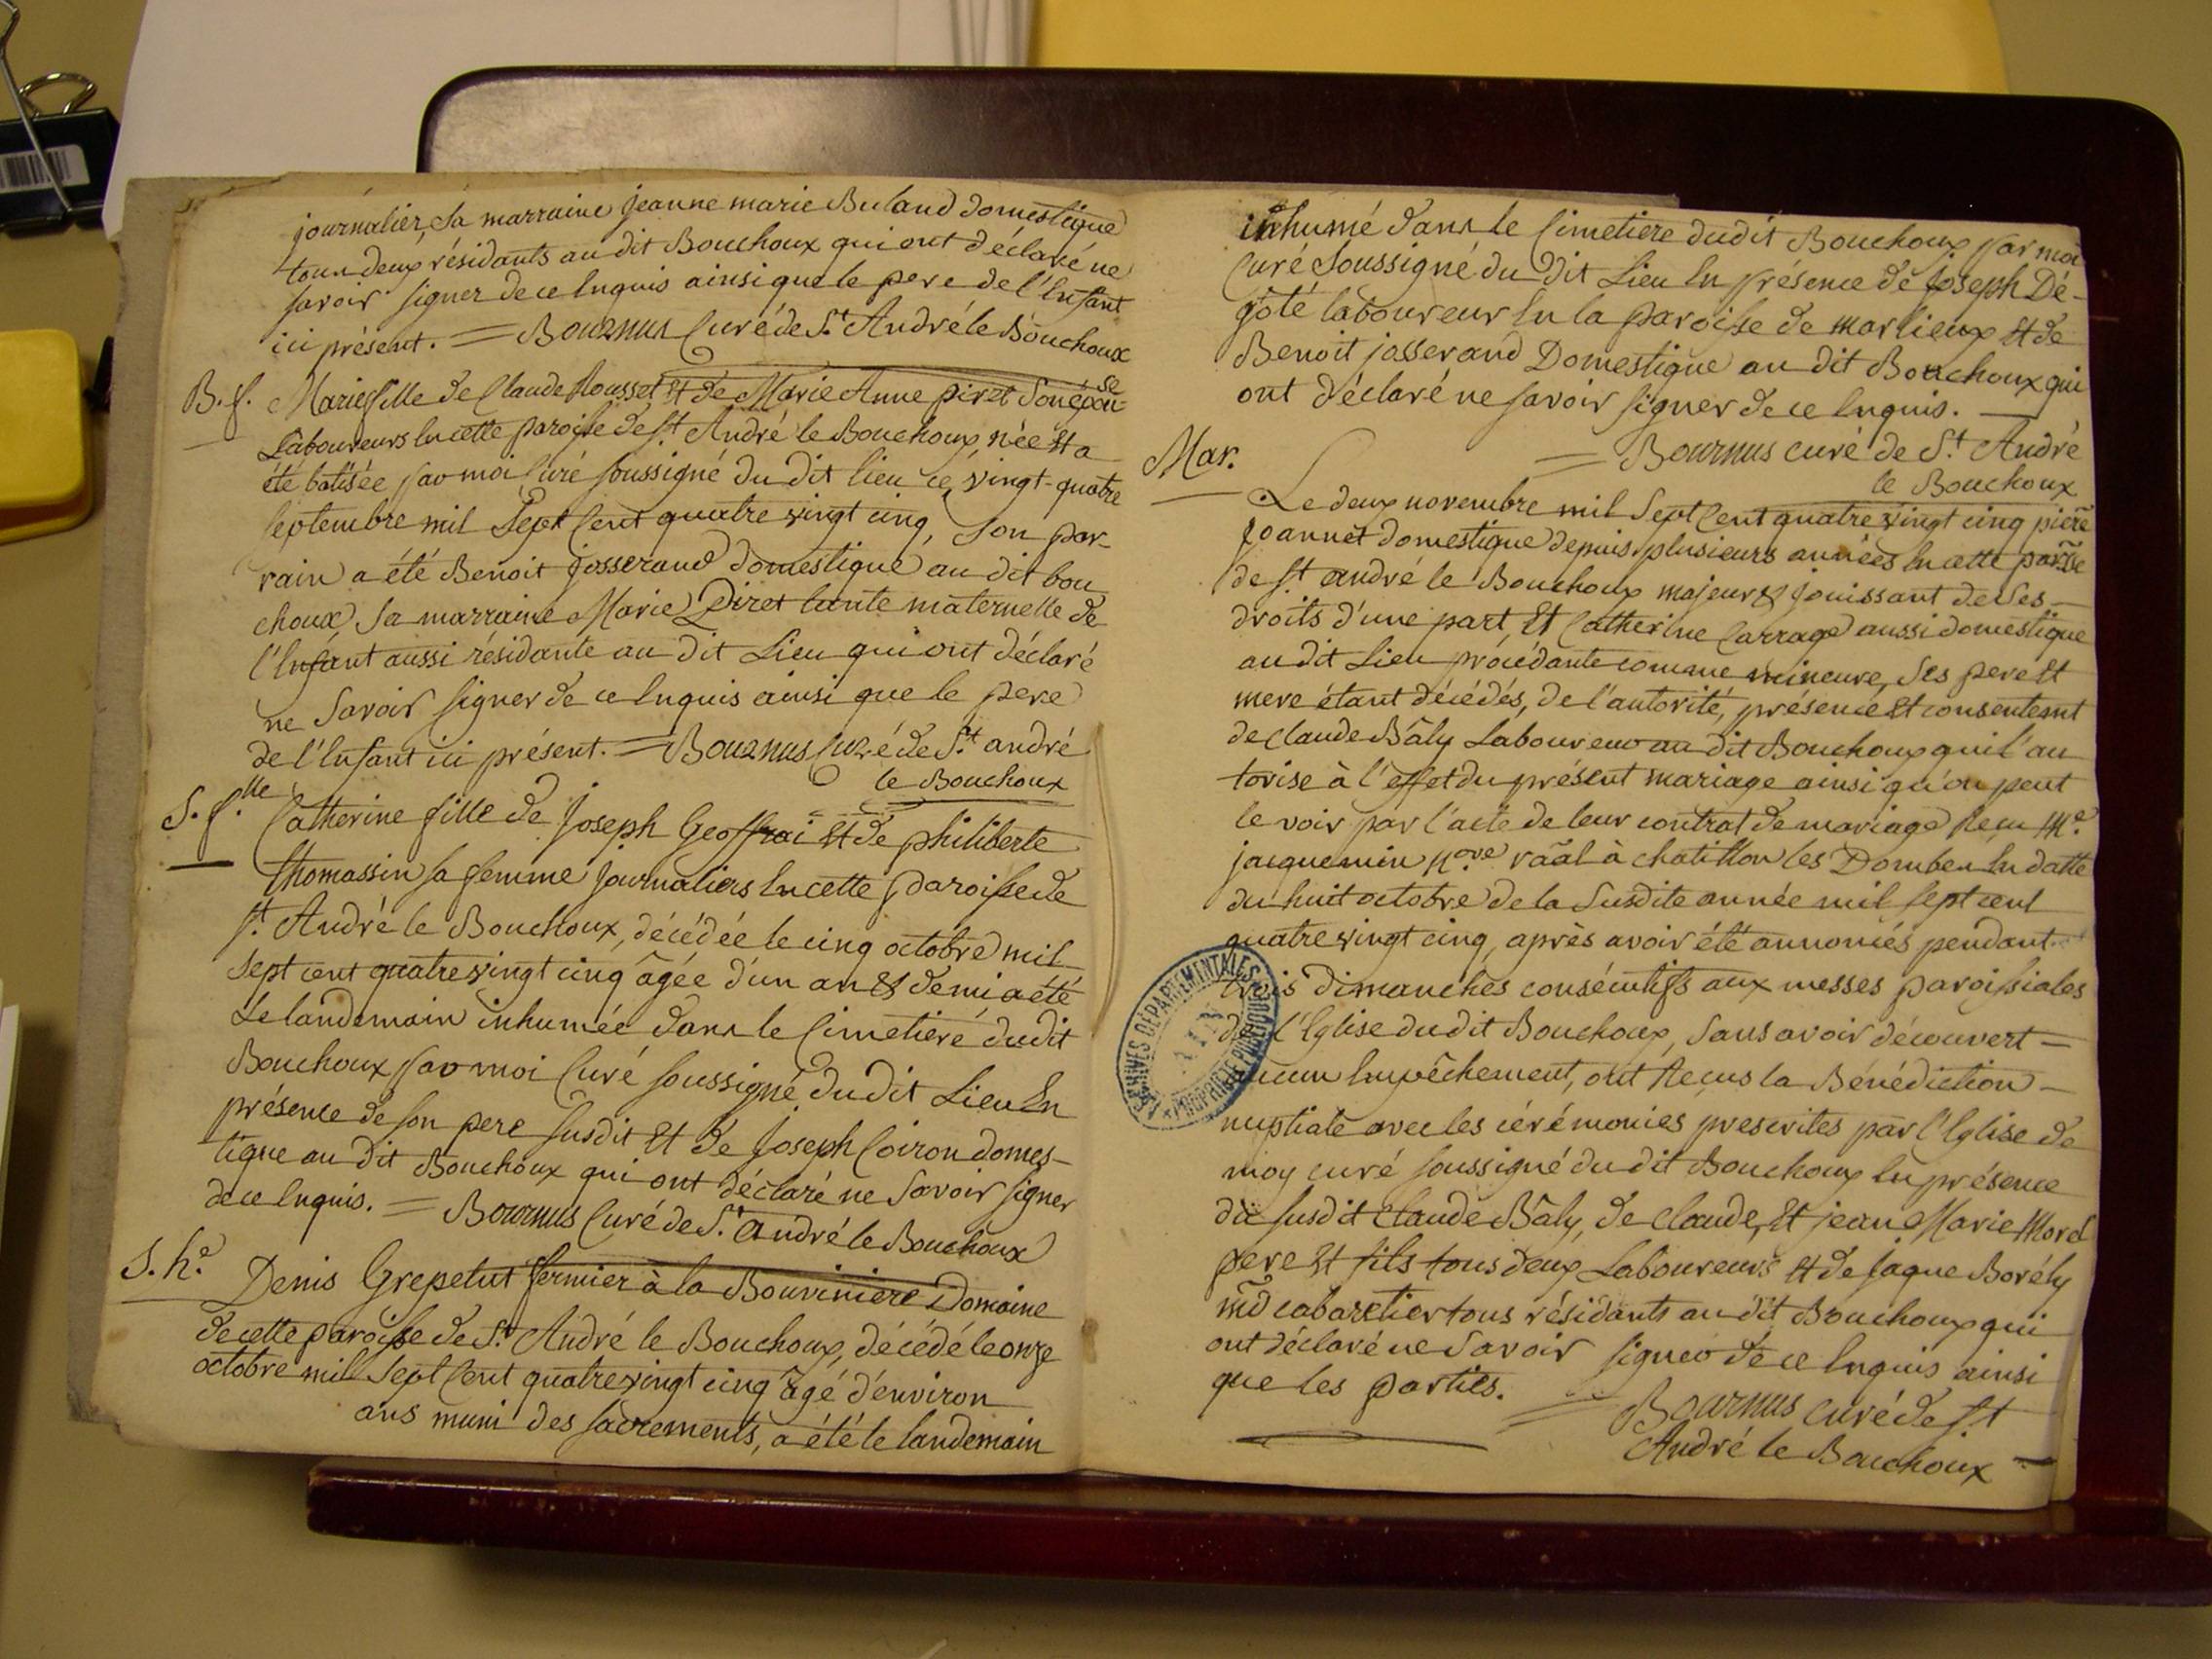 journalier, sa marraine jeanne marie Buland domestique
tous deux résidants au dit Bouchoux qui ont déclaré ne
savoir signer de ce Enquis ainsi que le pere de l'Enfant
ici présent. = Bournus Curé de St. André le Bouchoux
B. f. Marie fille de Claude Rousset Et de Marie Anne piret son épouse
Laboureurs En cette paroisse de St. André le Bouchoux née Et a
été batisée par moi Curé soussigné du dit lieu ce vingt-quatre
septembre mil Sept Cent quatre vingt cinq, son par-
rain a été Benoit josserand domestique au dit bou
choux, sa marraine Marie Piret tante maternelle de
l'Enfant aussi résidante au dit Lieu qui ont déclaré
ne savoir signer de ce Enquis ainsi que le pere
de l'Enfant ici présent. = Bournus Curé de St. andré
le Bouchoux
S. f.lle Catherine fille de Joseph Geoffrai Et de philiberte
thomassin sa femme journaliers En cette paroisse de
St. André le Bouchoux, décédée le cinq octobre mil
sept cent quatre vingt cinq âgée d'un an & demi a été
Le landemain inhumée dans le Cimetiere dudit
Bouchoux par moi Curé soussigné dudit Lieu En
présence de son pere susdit Et de Joseph Coiron domes-
tique au dit Bouchoux qui ont déclaré ne savoir signer
de ce Enquis. = Bournus Curé de St. André le Bouchoux
S. h.e Denis Grepelut fermier à la Bouviniere Domaine
de cette paroisse de St. André le Bouchoux, décédé le onze
octobre mil Sept Cent quatre vingt cinq âgé d'environ
ans muni des sacrements, a été le landemain
inhumé dans le Cimetiere dudit Bouchoux par moi
Curé soussigné du dit Lieu En présence de Joseph Dé-
gôté laboureur En la paroisse de marlieux Et de
Benoit josserand Domestique au dit Bouchoux qui
ont déclaré ne savoir signer de ce Enquis.
= Bournus curé de St. André
le Bouchoux
Mar.
Le deux novembre mil Sept Cent quatre vingt cinq pierre
Joannet domestique depuis plusieurs années En cette parsse
de St. andré le Bouchoux majeur & jouissant de Ses
droits d'une part, Et Catherine Carrage aussi domestique
au dit Lieu procédante comme mineure, Ses pere Et
mere étant décédés, de l'autorité, présence Et consentemt
de claude Bâly Laboureur au dit Bouchoux qui l'au
torise à l'effet du présent mariage ainsi qu'on peut
le voir par l'acte de leur contrat de mariage Recu Me.
jacquemin Nore. raäl à chatillon les Dombes En datte
du huit octobre de la Susdite année mil sept cent
quatre vingt cinq, après avoir été annoncés pendant
trois dimanches consécutifs aux messes paroissiales
de l'Eglise dudit Bouchoux, sans avoir découvert =
aucun Empêchement, ont Reçus la Bénédiction
nuptiale avec les cérémonies prescrites par l'Eglise de
moy curé soussigné du dit Bouchoux En présence
du susdit Claude Bâly, de claude, Et jean Marie Morel
pere Et fils tous deux Laboureurs Et de Jaque Borély
md cabaretier tous résidants au dit Bouchoux qui
ont déclaré ne savoir signer de ce Enquis ainsi
que les parties.
= Bournus curé de St
André le Bouchoux
ARCHIVES DÉPARTEMENTALES
AIN
PROPRIÉTÉ PUBLIQUE